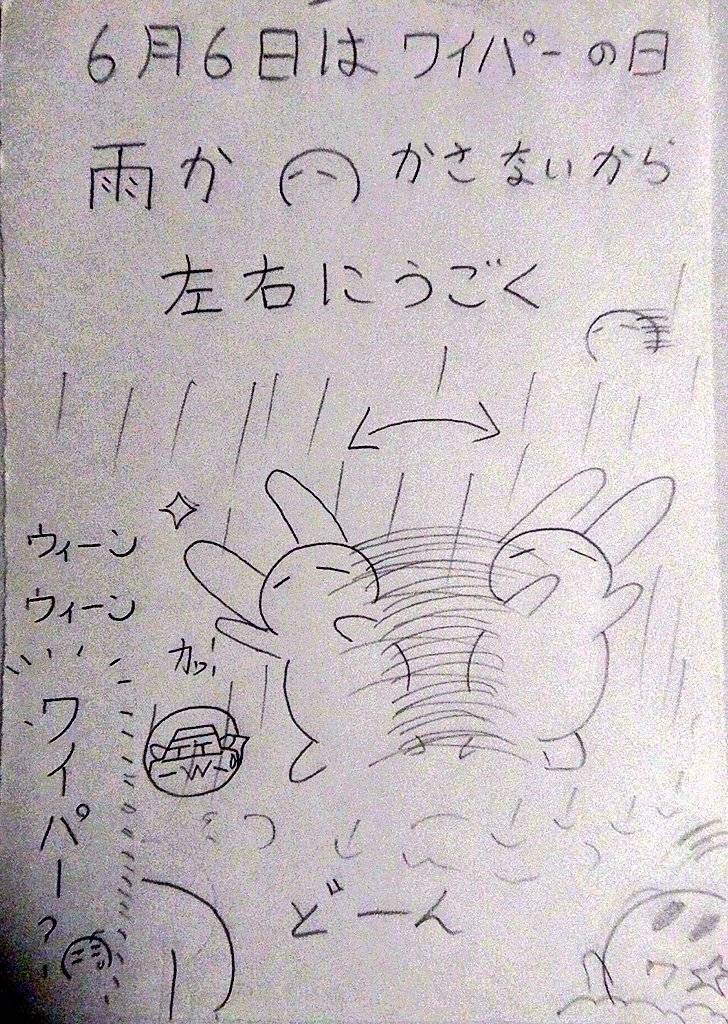 6月6日はワイパーの日
雨か かさないから
左右にうごく
ウィーン
ウィーン
カッ!
ワイパー?
どーん